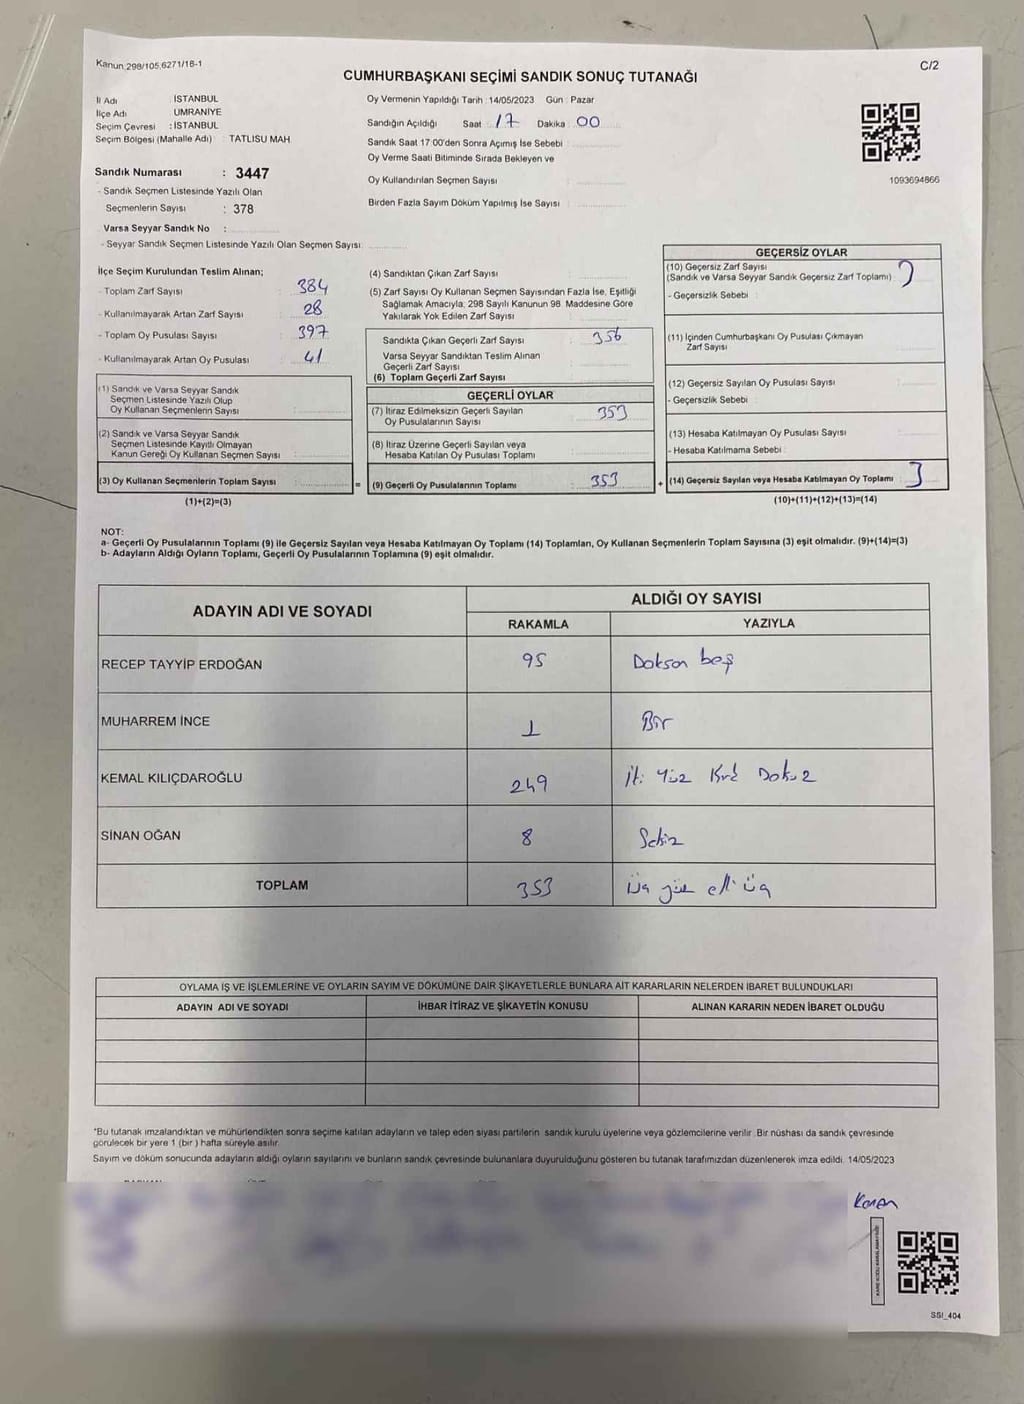 Kanun 298/105,6271/16-1
C/2
CUMHURBAŞKANI SEÇİMİ SANDIK SONUÇ TUTANAĞI
İl Adı : İSTANBUL
İlçe Adı : ÜMRANİYE
Seçim Çevresi : İSTANBUL
Seçim Bölgesi (Mahalle Adı) : TATLISU MAH
Sandık Numarası : 3447
- Sandık Seçmen Listesinde Yazılı Olan
Seçmenlerin Sayısı : 378
Varsa Seyyar Sandık No :
- Seyyar Sandık Seçmen Listesinde Yazılı Olan Seçmen Sayısı :
Oy Vermenin Yapıldığı Tarih : 14/05/2023 Gün : Pazar
Sandığın Açıldığı Saat : 17 Dakika : 00
Sandık Saat 17:00'den Sonra Açımış İse Sebebi :
Oy Verme Saati Bitiminde Sırada Bekleyen ve
Oy Kullandırılan Seçmen Sayısı :
Birden Fazla Sayım Döküm Yapılmış İse Sayısı :
1093694866
İlçe Seçim Kurulundan Teslim Alınan;
- Toplam Zarf Sayısı : 384
- Kullanılmayarak Artan Zarf Sayısı : 28
- Toplam Oy Pusulası Sayısı : 397
- Kullanılmayarak Artan Oy Pusulası : 41
(1) Sandık ve Varsa Seyyar Sandık
Seçmen Listesinde Yazılı Olup
Oy Kullanan Seçmenlerin Sayısı :
(2) Sandık ve Varsa Seyyar Sandık
Seçmen Listesinde Kayıtlı Olmayan
Kanun Gereği Oy Kullanan Seçmen Sayısı :
(3) Oy Kullanan Seçmenlerin Toplam Sayısı :
(1)+(2)=(3)
(4) Sandıktan Çıkan Zarf Sayısı :
(5) Zarf Sayısı Oy Kullanan Seçmen Sayısından Fazla İse, Eşitliği
Sağlamak Amacıyla, 298 Sayılı Kanunun 98. Maddesine Göre
Yakılarak Yok Edilen Zarf Sayısı :
Sandıkta Çıkan Geçerli Zarf Sayısı : 356
Varsa Seyyar Sandıktan Teslim Alınan
Geçerli Zarf Sayısı :
(6) Toplam Geçerli Zarf Sayısı :
GEÇERLİ OYLAR
(7) İtiraz Edilmeksizin Geçerli Sayılan
Oy Pusulalarının Sayısı : 353
(8) İtiraz Üzerine Geçerli Sayılan veya
Hesaba Katılan Oy Pusulası Toplamı :
= (9) Geçerli Oy Pusulalarının Toplamı : 353
GEÇERSİZ OYLAR
(10) Geçersiz Zarf Sayısı
(Sandık ve Varsa Seyyar Sandık Geçersiz Zarf Toplamı) :
- Geçersizlik Sebebi :
(11) İçinden Cumhurbaşkanı Oy Pusulası Çıkmayan
Zarf Sayısı :
(12) Geçersiz Sayılan Oy Pusulası Sayısı :
- Geçersizlik Sebebi :
(13) Hesaba Katılmayan Oy Pusulası Sayısı :
- Hesaba Katılmama Sebebi :
+ (14) Geçersiz Sayılan veya Hesaba Katılmayan Oy Toplamı : 3
(10)+(11)+(12)+(13)=(14)
NOT:
a- Geçerli Oy Pusulalarının Toplamı (9) ile Geçersiz Sayılan veya Hesaba Katılmayan Oy Toplamı (14) Toplamları, Oy Kullanan Seçmenlerin Toplam Sayısına (3) eşit olmalıdır. (9)+(14)=(3)
b- Adayların Aldığı Oyların Toplamı, Geçerli Oy Pusulalarının Toplamına (9) eşit olmalıdır.
ADAYIN ADI VE SOYADI
ALDIĞI OY SAYISI
RAKAMLA YAZIYLA
RECEP TAYYİP ERDOĞAN 95 Doksan beş
MUHARREM İNCE 1 Bir
KEMAL KILIÇDAROĞLU 249 İki Yüz Kırk Dokuz
SİNAN OĞAN 8 Sekiz
TOPLAM 353 Üç yüz elli üç
OYLAMA İŞ VE İŞLEMLERİNE VE OYLARIN SAYIM VE DÖKÜMÜNE DAİR ŞİKAYETLERLE BUNLARA AİT KARARLARIN NELERDEN İBARET BULUNDUKLARI
ADAYIN ADI VE SOYADI İHBAR İTİRAZ VE ŞİKAYETİN KONUSU ALINAN KARARIN NEDEN İBARET OLDUĞU
*Bu tutanak imzalandıktan ve mühürlendikten sonra seçime katılan adayların ve talep eden siyasi partilerin sandık kurulu üyelerine veya gözlemcilerine verilir. Bir nüshası da sandık çevresinde
görülecek bir yere 1 (bir) hafta süreyle asılır.
Sayım ve döküm sonucunda adayların aldığı oyların sayılarını ve bunların sandık çevresinde bulunanlara duyurulduğunu gösteren bu tutanak tarafımızdan düzenlenerek imza edildi. 14/05/2023
SSI_404